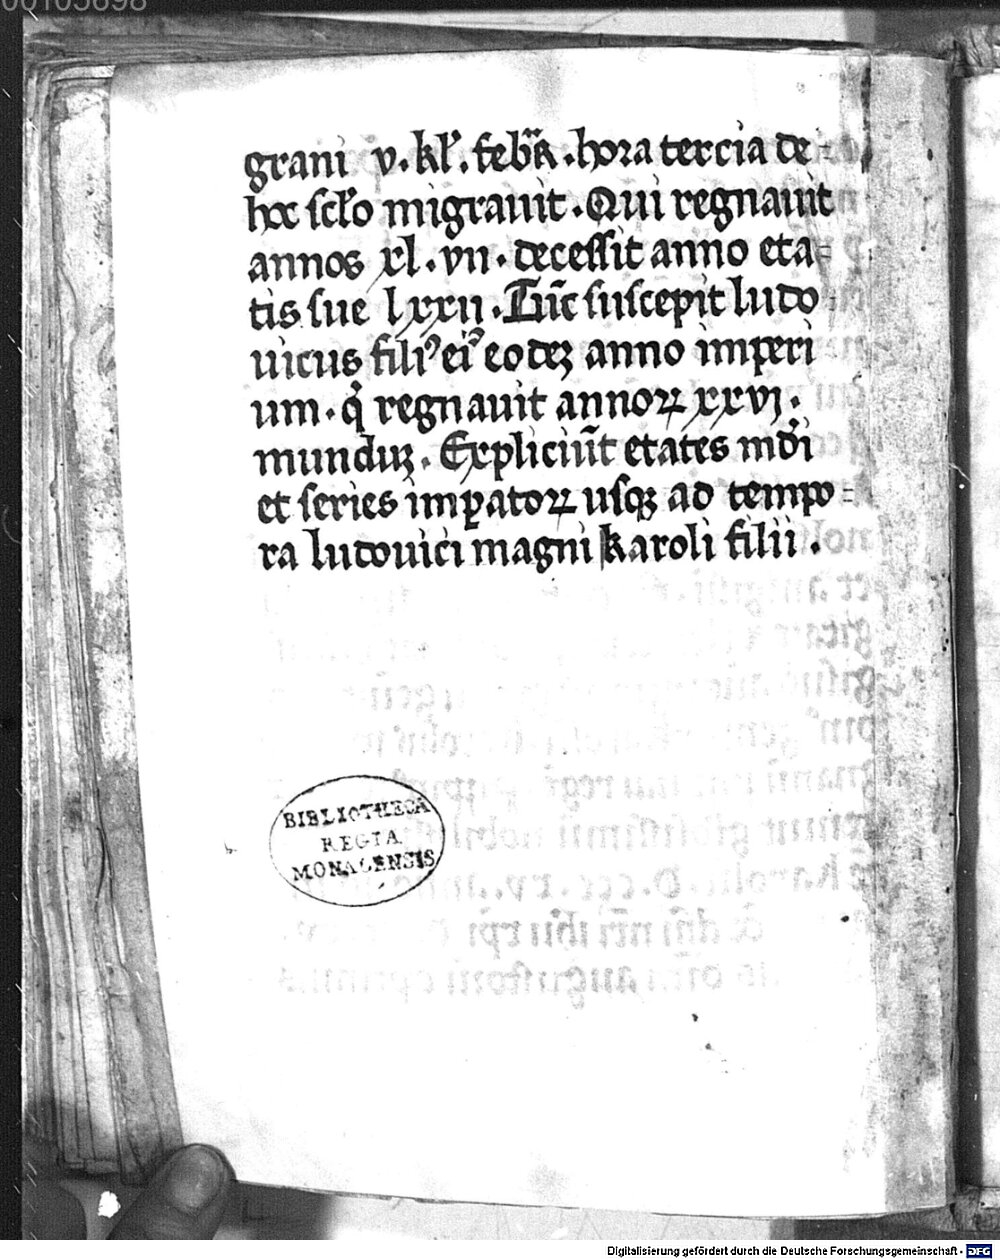 00105698
grani v. kl'. feb̄r. hora tercia de=
hoc sc̄lo migrauit. Qui regnauit
annos xl. vii. decessit anno eta=
tis sue lxxii. Tūc suscepit ludo=
uicus fili⁹ ei⁹ eodeꝫ anno imperi
um. q̇ regnauit annoꝝ xxvi.
munduꝫ. Expliciūt etates mūdi
et series imꝑatoꝝ usqꝫ ad tempo=
ra ludouici magni karoli filii.
BIBLIOTHECA
REGIA
MONACENSIS
Digitalisierung gefördert durch die Deutsche Forschungsgemeinschaft - DFG